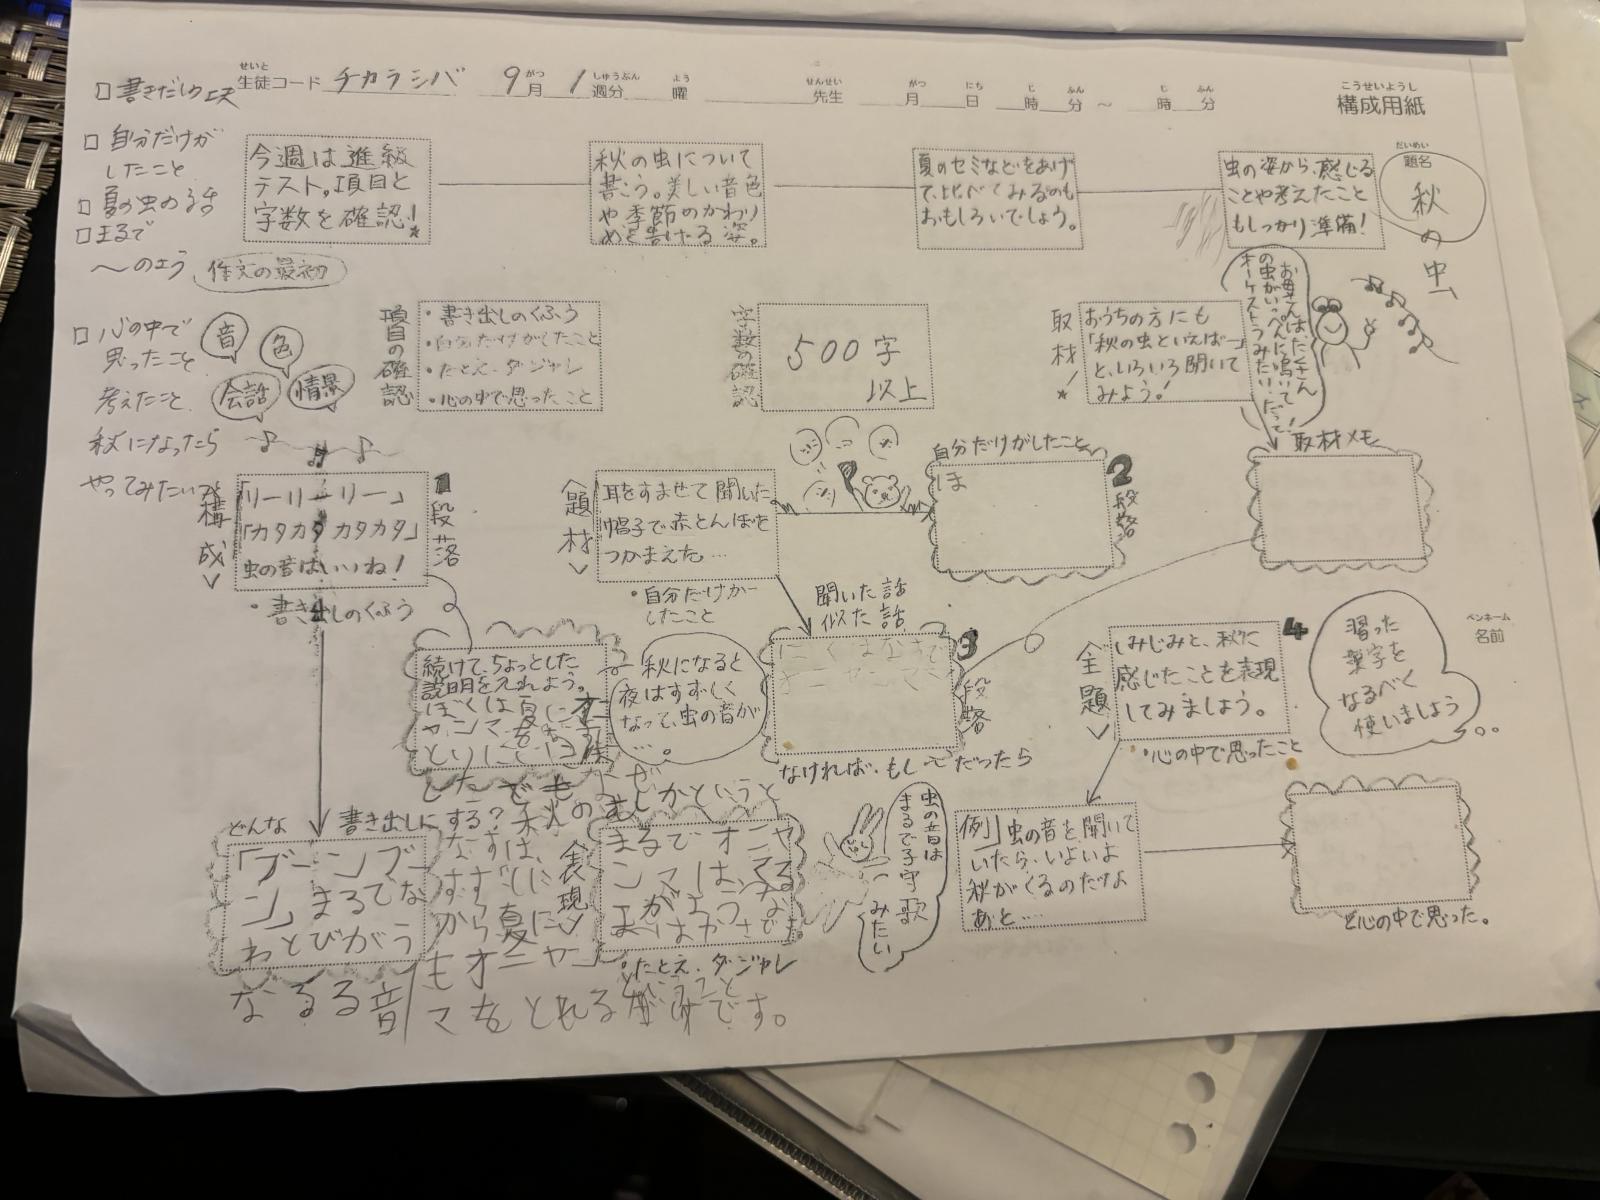 □書きだし工夫
□自分だけが
したこと
□夏の虫の話
□まるで
〜のよう
作文の最初
□心の中で
思ったこと
考えたこと
秋になったら
やってみたい
せいと
生徒コード チカラシバ 9月 1週分 曜 先生 月 日 時 分 〜 時 分
こうせいようし
構成用紙
今週は進級
テスト。項目と
字数を確認!
秋の虫について
書こう。美しい音色
や季節のかわり
めを告げる姿。
夏のセミなどをあげ
て、比べてみるのも
おもしろいでしょう。
虫の姿から、感じる
ことや考えたこと
もしっかり準備!
だいめい
題名
秋の虫
音
色
会話
情景
項目の確認
・書き出しのくふう
・自分だけがしたこと
・たとえ、ダジャレ
・心の中で思ったこと
字数の確認
500字
以上
取材!
おうちの方にも
「秋の虫といえば…」
と、いろいろ聞いて
みよう!
お母さんはたくさん
の虫がいっぺんに鳴いて
オーケストラみたい!だって!
構成
「リーリーリー」
「カタカタカタカタ」
虫の音はいいね!
1段落
・書き出しのくふう
題材
耳をすませて聞いた。
帽子で赤とんぼを
つかまえた。…
・自分だけが
したこと
自分だけがしたこと
ほ
2段落
取材メモ
続けて、ちょっとした
説明を入れよう。
ぼくは夏にオニ
ヤンマを
とりに
秋になると
夜はすずしく
なって、虫の音が
…。
聞いた話
似た話
3段落
なければ、もし〜だったら
全題
しみじみと、秋に
感じたことを表現
してみましょう。
4
・心の中で思ったこと
習った
漢字を
なるべく
使いましょう
ペンネーム
名前
どんな書き出しにする?
「ブーンブー
ン」まるでな
わとびがう
なるる音
でも秋の
なすは、
すずしに
から夏に
もオニヤン
マをとれる
です。
なぜ
かというと
表現
まるでオニヤ
ンマは、
・たとえ、ダジャレ
虫の音は
まるで子守歌
みたい
例」虫の音を聞いて
いたら、いよいよ
秋がくるのだなよ
あと……
と心の中で思った。